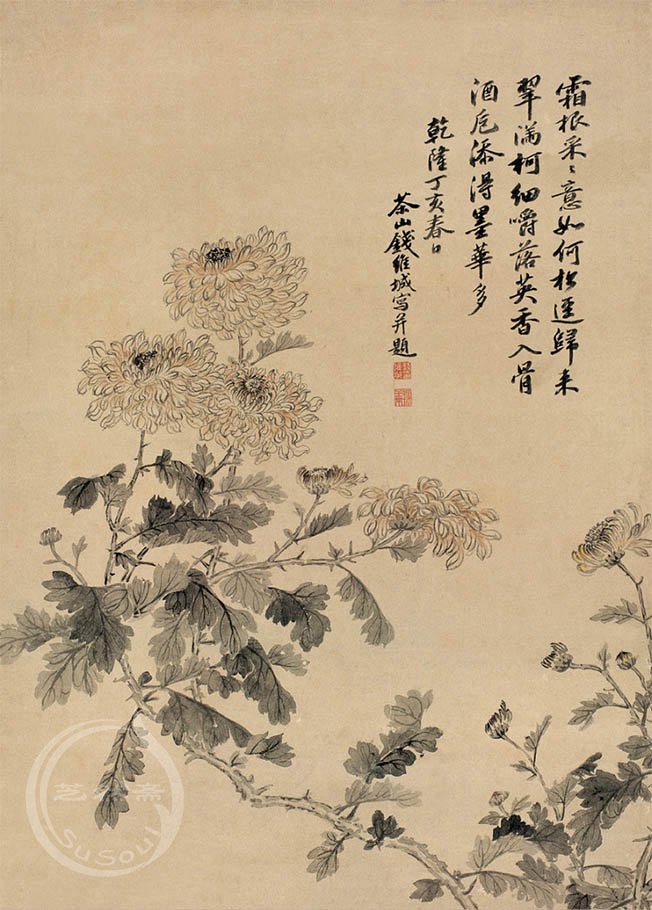 霜根采〻意如何松逕歸来
翠滿柯細嚼落英香入骨
酒卮添得墨華多
乾隆丁亥春日
茶山錢維城寫并題
SuSoul